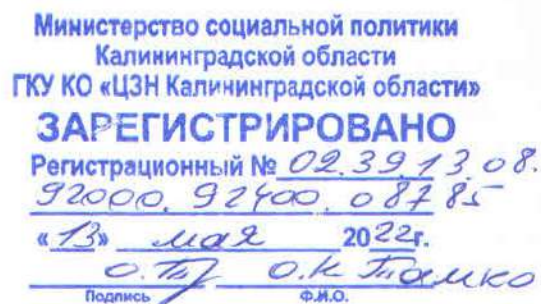 Министерство социальной политики
Калининградской области
ГКУ КО «ЦЗН Калининградской области»
ЗАРЕГИСТРИРОВАНО
Регистрационный № 02.39.13.08.
92000.92400.08785
«13» мая 2022г.
О.К
Подпись Ф.И.О.